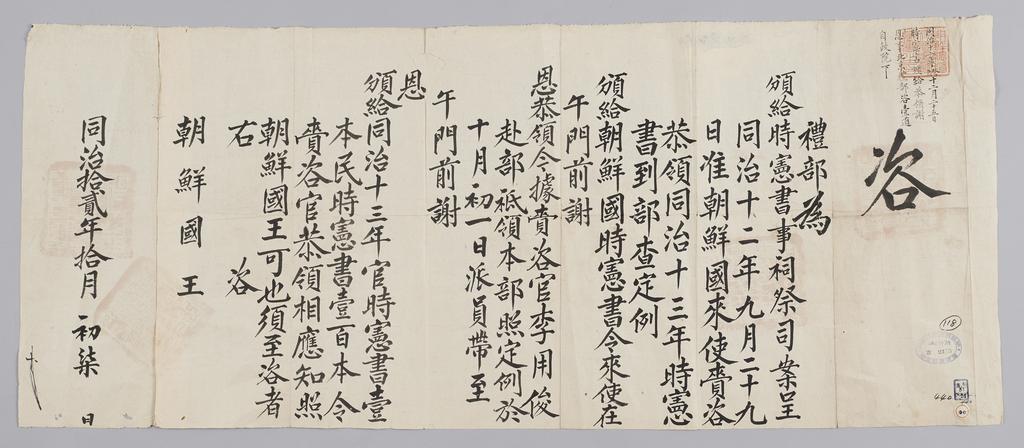 咨
禮部為
頒給時憲書事祠祭司案呈
同治十二年九月二十九
日准朝鮮國來使賫咨
恭領同治十三年時憲
書到部查定例
頒給朝鮮國時憲書令來使在
午門前謝
恩恭領今據賫咨官李用俊
赴部祗領本部照定例於
十月初一日派員帶至
午門前謝
恩
頒給同治十三年官時憲書壹
本民時憲書壹百本令
賫咨官恭領相應知照
朝鮮國王可也須至咨者
右咨
朝鮮國王
同治拾貳年拾月初柒日
118
440